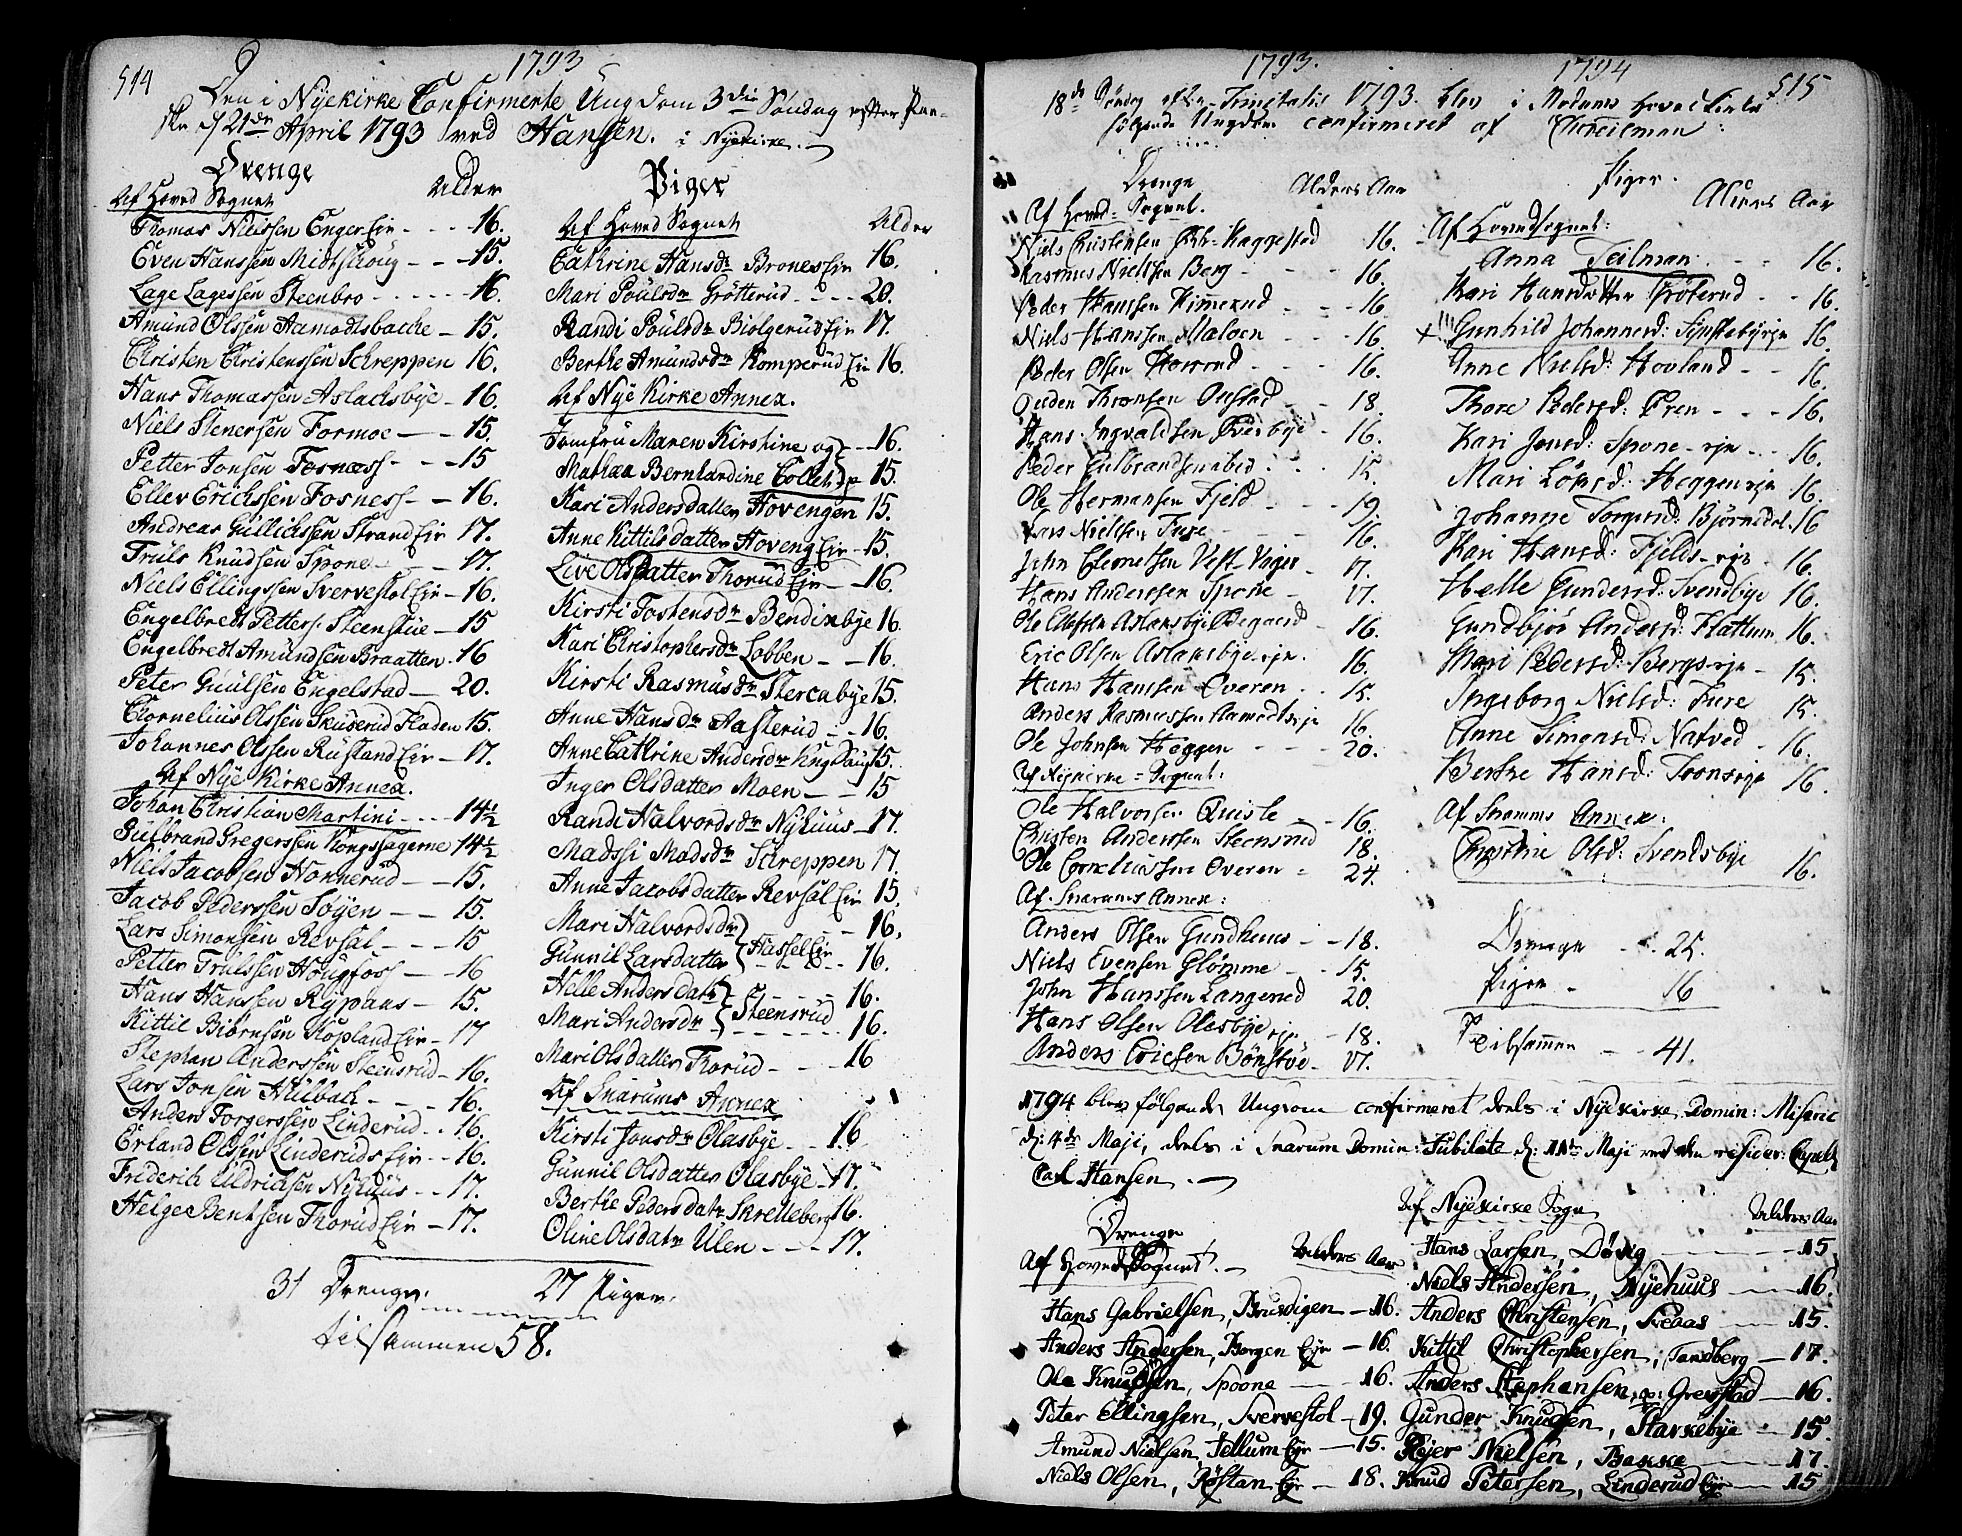 514
1793
Den i Nyekirke Confirmerte Ungdom 3die Søndag efter Paa-
ske d 21de April 1793 ved Hansen. i Nyekirke.
Drenge
Af Hoved Sognet Alder
Thomas Nielssen Enger Eir - 16.
Even Hanssen Midtschoug - 15.
Lage Lagessen Steenbro - 16.
Amund Olssen Aamodtsbache - 15.
Christen Christenssen Schreppen 16.
Hans Thomassen Aslachsbye - 16.
Niels Stenersen Formoe - 15.
Petter Jonsen Fosness - 15
Ellev Erichssen Fosness - 16.
Andreas Gullichssen Strand Eir 17.
Truls Knudsen Spone - 17.
Niels Ellingssen Svervestol Eir - 16.
Engelbredt Petters: Steenstue - 15
Engelbredt Amundsen Braatten. 16
Peter Guulsen Engelstad - 20.
Cornelius Olssen Skuserud Floden 15.
Johannes Olssen Rustand Eir - 17.
Af Nye Kirke Annex.
Johan Christian Martini - 14½
Gulbrand Gregerssen Kongssagerne 14½
Niels Jacobsen Honnerud - 15.
Jacob Pederssen Søyen - 15.
Lars Simonsen Revsal - 15
Petter Trulssen Hougfoss - 16
Hans Hanssen Rypaas - 15.
Kittil Biørnsen Kopland Eir - 17
Stephan Anderssen Steensrud - 16.
Lars Jonsen Hulbach - 16.
Anders Torgerssen Linderud - 16
Erland Olssen Linderuds Eir - 16.
Friderich Uldrichsen Nyhuus - 17.
Helge Bentsen Thorud Eir - 17.
Piger
Af Hoved Sognet Alder
Cathrine Hansdr Broness Eir 16.
Mari Poulsdr Grøtterud - 20.
Randi Poulsdr Biølgerud Eir 17.
Berthe Amundsdr Komperud Eir 16.
Af Nye Kirke Annex.
Jomfru Maren Kirstine og - 16.
Mathæa Bernhardine Collet 15.
Kari Andersdatter Hovengen 15.
Anne Kittilsdatter Hoveng Eir - 15.
Live Olsdatter Thorud Eir - 16.
Kirsti Tostensdr Bendixbye 16.
Kari Christophersdr Lobben - 16.
Kirsti Rasmusdr Stercabye 15.
Anne Hansdr Aasterud - 16.
Anne Cathrine Andersdr Kug Saug 15.
Inger Olsdatter Moen - 15
Randi Halvordsdr Nyhuus - 17.
Madssi Madsdr Schreppen 17.
Anne Jacobsdatter Revsal Eir 15.
Mari Halvordsdr - 16.
Gunnil Larsdatter Hassel Eir 16.
Helle Andersdatr - 16.
Mari Andersdr Steensrud 16.
Mari Olsdatter Thorud - 16
Af Snarums Annex
Kirsti Jonsdr Olasbye - 16
Gunnil Olsdatter Olasbye - 17.
Berthe Pedersdatr Skrelleberg 16.
Oline Olsdatr Ulen - 17.
31 Drenge. 27 Piger.
tilsammen 58.
1793. 1794 515
18de Søndag efter Trinitatis 1793. blev i Modums Hoved Kirke
følgende Ungdom confirmeret af
Drenge Alders Aar
Af Hoved-Sognet.
Niels Christensen Haggestad 16.
Rasmus Nielssen Berg - 16.
Peder Hanssen Kimerud - 16.
Niels Hanssen Maloen - 16.
Peder Olsen - 16.
Ouden Thronsen Onstad - 18.
Hans Ingvaldsen Øverbye - 16.
Peder Gulbrandsen - 15.
Ole Hermansen Fjeld - 19.
Lars Nielssen Fure - 16.
John Vest-Viger - 17.
Hans Anderssen Spone - 17.
Ole Aslaksbye Ødegaard - 16.
Eric Olsen Aslaksbye ejr. 16.
Hans Hanssen Overen - 15.
Anders Rasmussen Aamodtsejr 16.
Ole Johnsen Heggen - 20.
Af Nykirke-Sognet:
Ole Halvorsen Quisle - 16.
Christen Anderssen Steensrud 18.
Ole Corneliussen Overen - 24.
Af Snarums Annex:
Anders Olsen Gundhuus - 18.
Niels Evensen Glømme - 15.
John Hanssen Langerud 20.
Hans Olsen Olasbye ejr. - 18.
Anders Ericsen Bønstue - 17.
Piger. Alders Aar
Af Hovedsognet:
Anna Teilman - 16.
Kari Hansdatter Grøterud - 16.
+ Gunhild Johannesd: 16.
Anne Nielsd: Hovland - 16.
Thore Pedersd: Pren - 16.
Kari Jonsd: Spone-ejr - 16.
Mari Heggen ejr 16.
Johanne Torgersd: Bjørnedal. 16
Kari Hansd: Fjelds-ejr - 16.
Helle Gundersd: Svendbye 16.
Gundbjør Andersd: Flattum 16.
Mari Pedersd: Bergs-ejr - 15.
Ingeborg Nielsd: Fure 15.
Anne Simonsd: Natved - 16.
Berthe Hansd: 16.
Af Snarums Annex:
Christine Olsd: Svendsbye 16.
Drenge - 25.
Piger - 16
Tilsammen - 41.
1794 blev følgende Ungdom confirmeret deels i Nyekirke Domin: Miseric
d: 4de Maji, deels i Snarum Domin: Jubilate d: 11te Maji ved den resider: Capel:
Carl Hansen.
Drenge
Af Hoved Sognet. Alders Aar
Hans Gabrielsen, Brusdigen - 16.
Anders Andersen, Borgen Ejr - 16.
Ole Knudsen, Spoone - 16.
Peter Ellingsen, Svervestol - 19.
Amund Nielsen, Tellum Ejr - 15.
Niels Olsen, Røstan Ejr - 18.
Af Nyekirke Sogn Alders Aar
Hans Larsen, Døvig - 15
Niels Andersen, Nyehuus - 16.
Anders Christensen, Sveaas - 15.
Kittil Christophersen, Tandberg - 17.
Anders Stephansen, Grevstad - 16.
Gunder Knudsen, Starkebye - 15.
Rejer Nielsen, Bakke - 17.
Knud Petersen, Linderud Ejr - 15